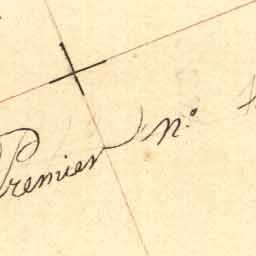 Premier n.º